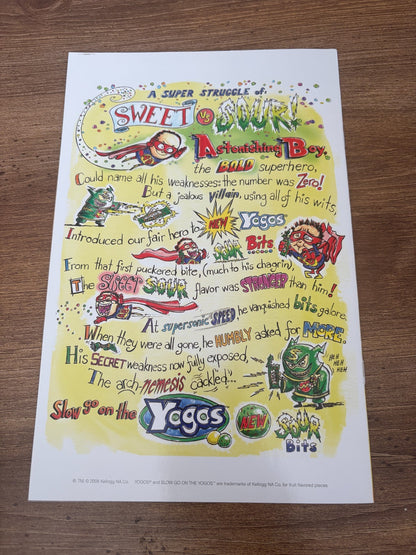 A SUPER STRUGGLE of:
SWEET vs SOUR!
Astonishing Boy,
the BOLD superhero,
Could name all his weaknesses: the number was Zero!
But a jealous Villain, using all of his wits,
Introduced our fair hero to NEW Yogos
SOUR Bits.
From that first puckered bite, (much to his chagrin),
The SWEET SOUR flavor was STRONGER than him!
At supersonic SPEED he vanquished bits galore.
When they were all gone, he HUMBLY asked for MORE.
His SECRET weakness now fully exposed,
HEH HEH HEH
The arch-nemesis cackled...
Slow go on the Yogos NEW SOUR
BITS
®, TM, © 2006 Kellogg NA Co. YOGOS® and SLOW GO ON THE YOGOS™ are trademarks of Kellogg NA Co. for fruit flavored pieces.